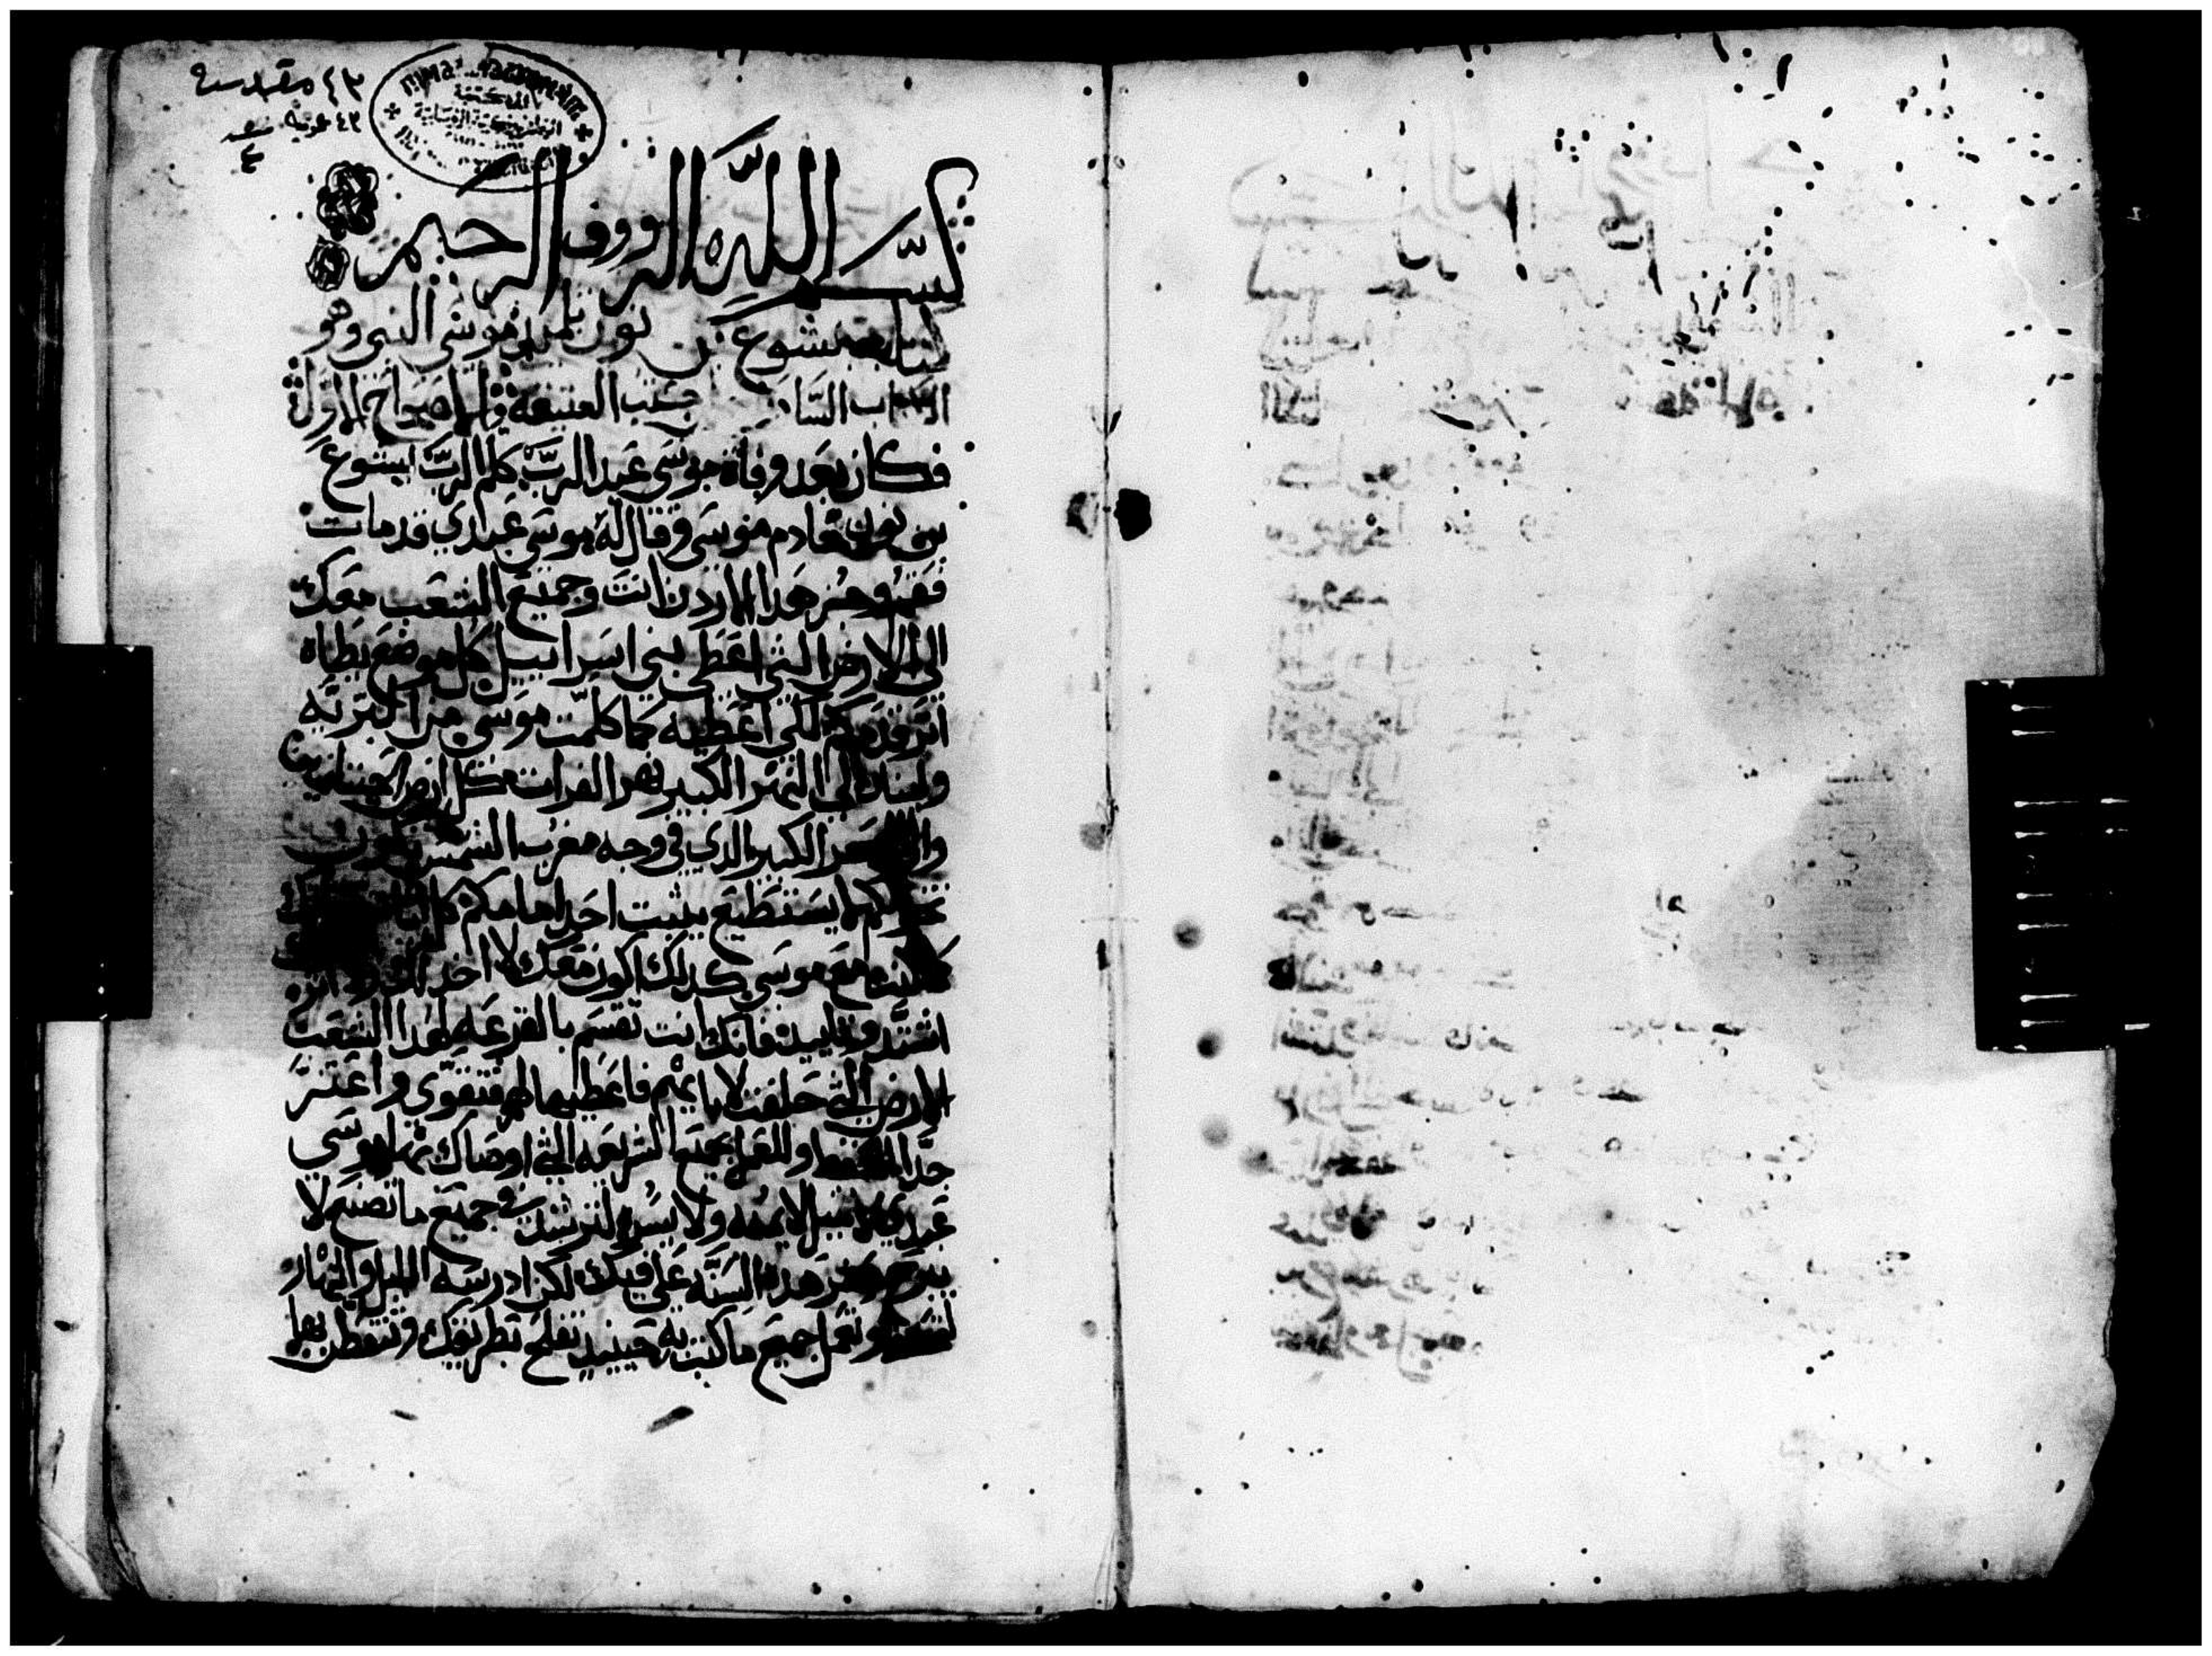 ٤٢ مقدسة
٤٢ عربية
المكتبة
بسم الله الرووف الرحيم
كتاب يشوع بن نون تلميذ موسى النبي وهو
الكتاب السادس العتيقه الاصحاح الاول
فكان بعد وفاة موسى عبد الرب كلم الرب ليشوع
بن نون خادم موسى وقال له موسى عبدي قد مات
فقم وجز هدا الاردن انت وجميع الشعب معك
الى الارض التي اعطى بني اسراييل كل موضع تطاه
اثر قدمكم لكي اعطيه كما كلمت موسى من البريه
ولبنان الى النهر الكبير نهر الفرات كل ارض
الكبير الدي في وجه مغرب الشمس
يستطيع يثبت احد امامكم
كنت مع موسى كدلك اكون معك لا
اشتد وتايد فانك انت تقسم بالقرعه لهدا الشعب
الارض التي حلفت لابايهم فاعطيها لهم فتقوى واعتز
جدا لتحفظ وللعمل بجميع الشريعه التي اوصاك بها موسى
عبدي لا تميل لا يمنه ولا يسره لترشد في جميع ما تصنع لا
هده السنه على فيك لكن ادرسه الليل والنهار
لتحفظ وتعمل جميع ما كتب به حينيد تفلح بطريقك وتتفطن بها